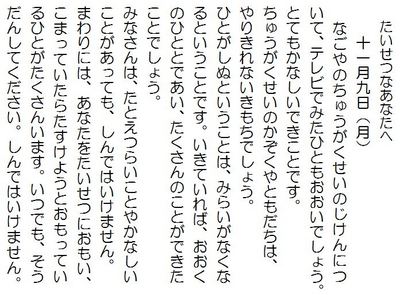 たいせつなあなたへ
十一月九日（月）
なごやのちゅうがくせいのじけんにつ
いて、テレビでみたひともおおいでしょう。
とてもかなしいできことです。
ちゅうがくせいのかぞくやともだちは、
やりきれないきもちでしょう。
ひとがしぬということは、みらいがなくな
るということです。いきていれば、おおく
のひととであい、たくさんのことができた
ことでしょう。
みなさんは、たとえつらいことやかなしい
ことがあっても、しんではいけません。
まわりには、あなたをたいせつにおもい、
こまっていたらたすけようとおもってい
るひとがたくさんいます。いつでも、そう
だんしてください。しんではいけません。